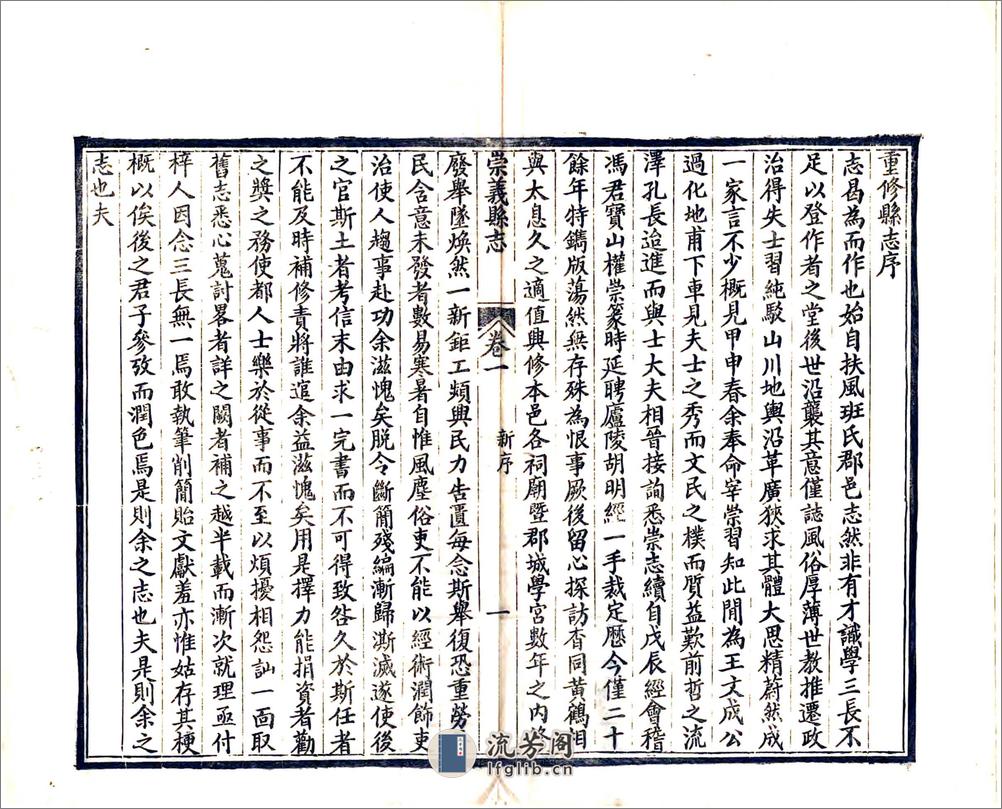 重修縣志序
志曷為而作也始自扶風班氏郡邑志然非有才識學三長不
足以登作者之堂後世沿襲其意僅誌風俗厚薄世教推遷政
治得失士習純駁山川地輿沿革廣狹求其體大思精蔚然成
一家言不少概見甲申春余奉命宰崇習知此間為王文成公
過化地甫下車見夫士之秀而文民之樸而質益歎前哲之流
澤孔長迨進而與士大夫相晉接詢悉崇志續自戊辰經會稽
馮君寶山權崇篆時延聘廬陵胡明經一手裁定歷今僅二十
餘年特鐫版蕩然無存殊為恨事厥後留心探訪杳同黃鶴相
與太息久之適值興修本邑各祠廟暨郡城學宮數年之內
崇義縣志
卷一
新序
一
廢舉墜煥然一新鉅工頻興民力告匱每念斯舉復恐重勞
民含意未發者數易寒暑自惟風塵俗吏不能以經術潤飾吏
治使人趨事赴功余滋愧矣脫令斷簡殘編漸歸澌滅遂使後
之官斯土者考信末由求一完書而不可得致咎久於斯任者
不能及時補修責將誰逭余益滋愧矣用是擇力能捐資者勸
之獎之務使都人士樂於從事而不至以煩擾相怨訕一面取
舊志悉心蒐討畧者詳之闕者補之越半載而漸次就理亟付
梓人因念三長無一焉敢執筆削簡貽文獻羞亦惟姑存其梗
概以俟後之君子參攷而潤色焉是則余之志也夫是則余之
志也夫
流芳閣
lfglib.cn